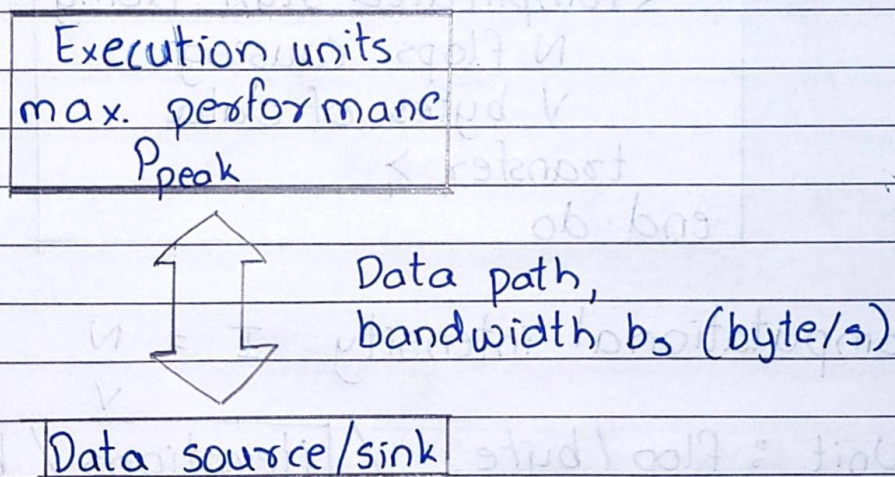 Execution units
max. performanc
Ppeak
Data path,
bandwidth, bs (byte/s)
Data source/sink